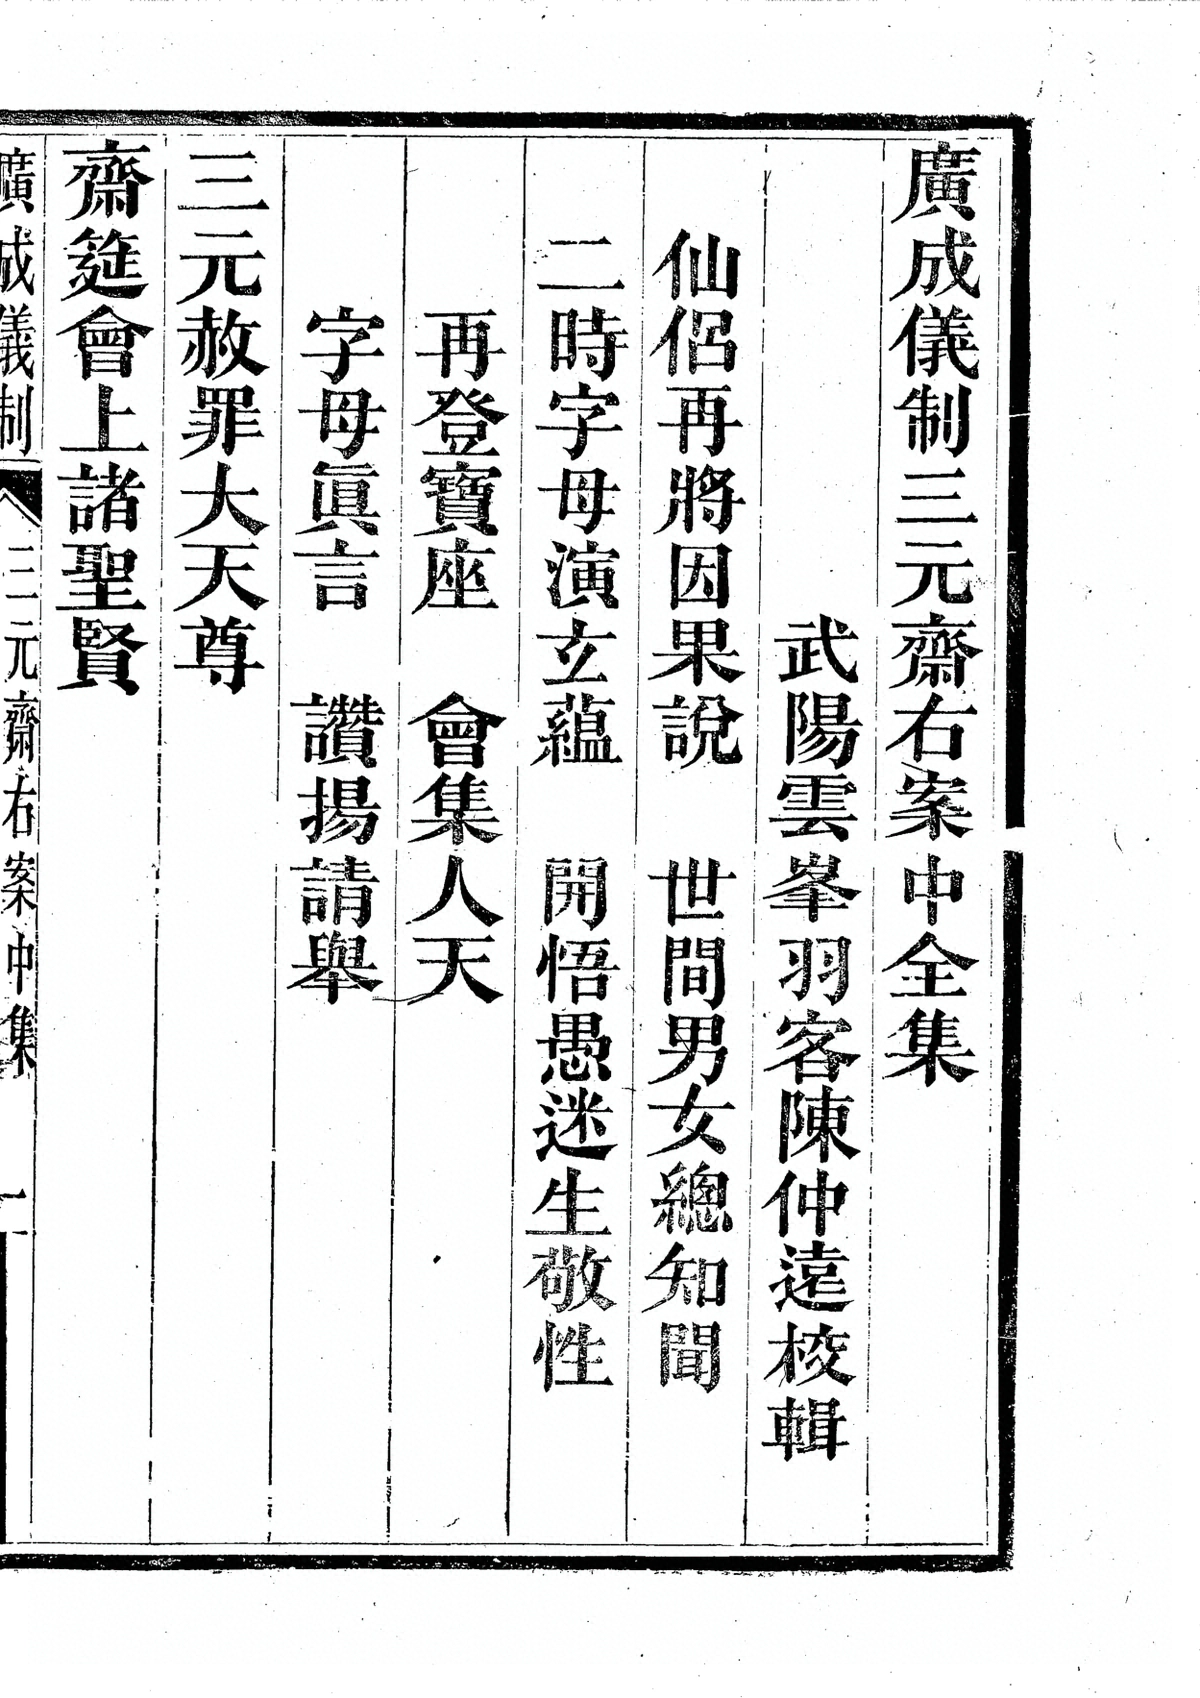 廣成儀制三元齋右案中全集
武陽雲峯羽客陳仲遠校輯
仙侶再將因果說　世間男女總知聞
二時字母演玄蘊　開悟愚迷生敬性
再登寶座　會集人天
字母眞言　讚揚請舉
三元赦罪大天尊
齋筵會上諸聖賢
廣成儀制　三元齋右案中集　一